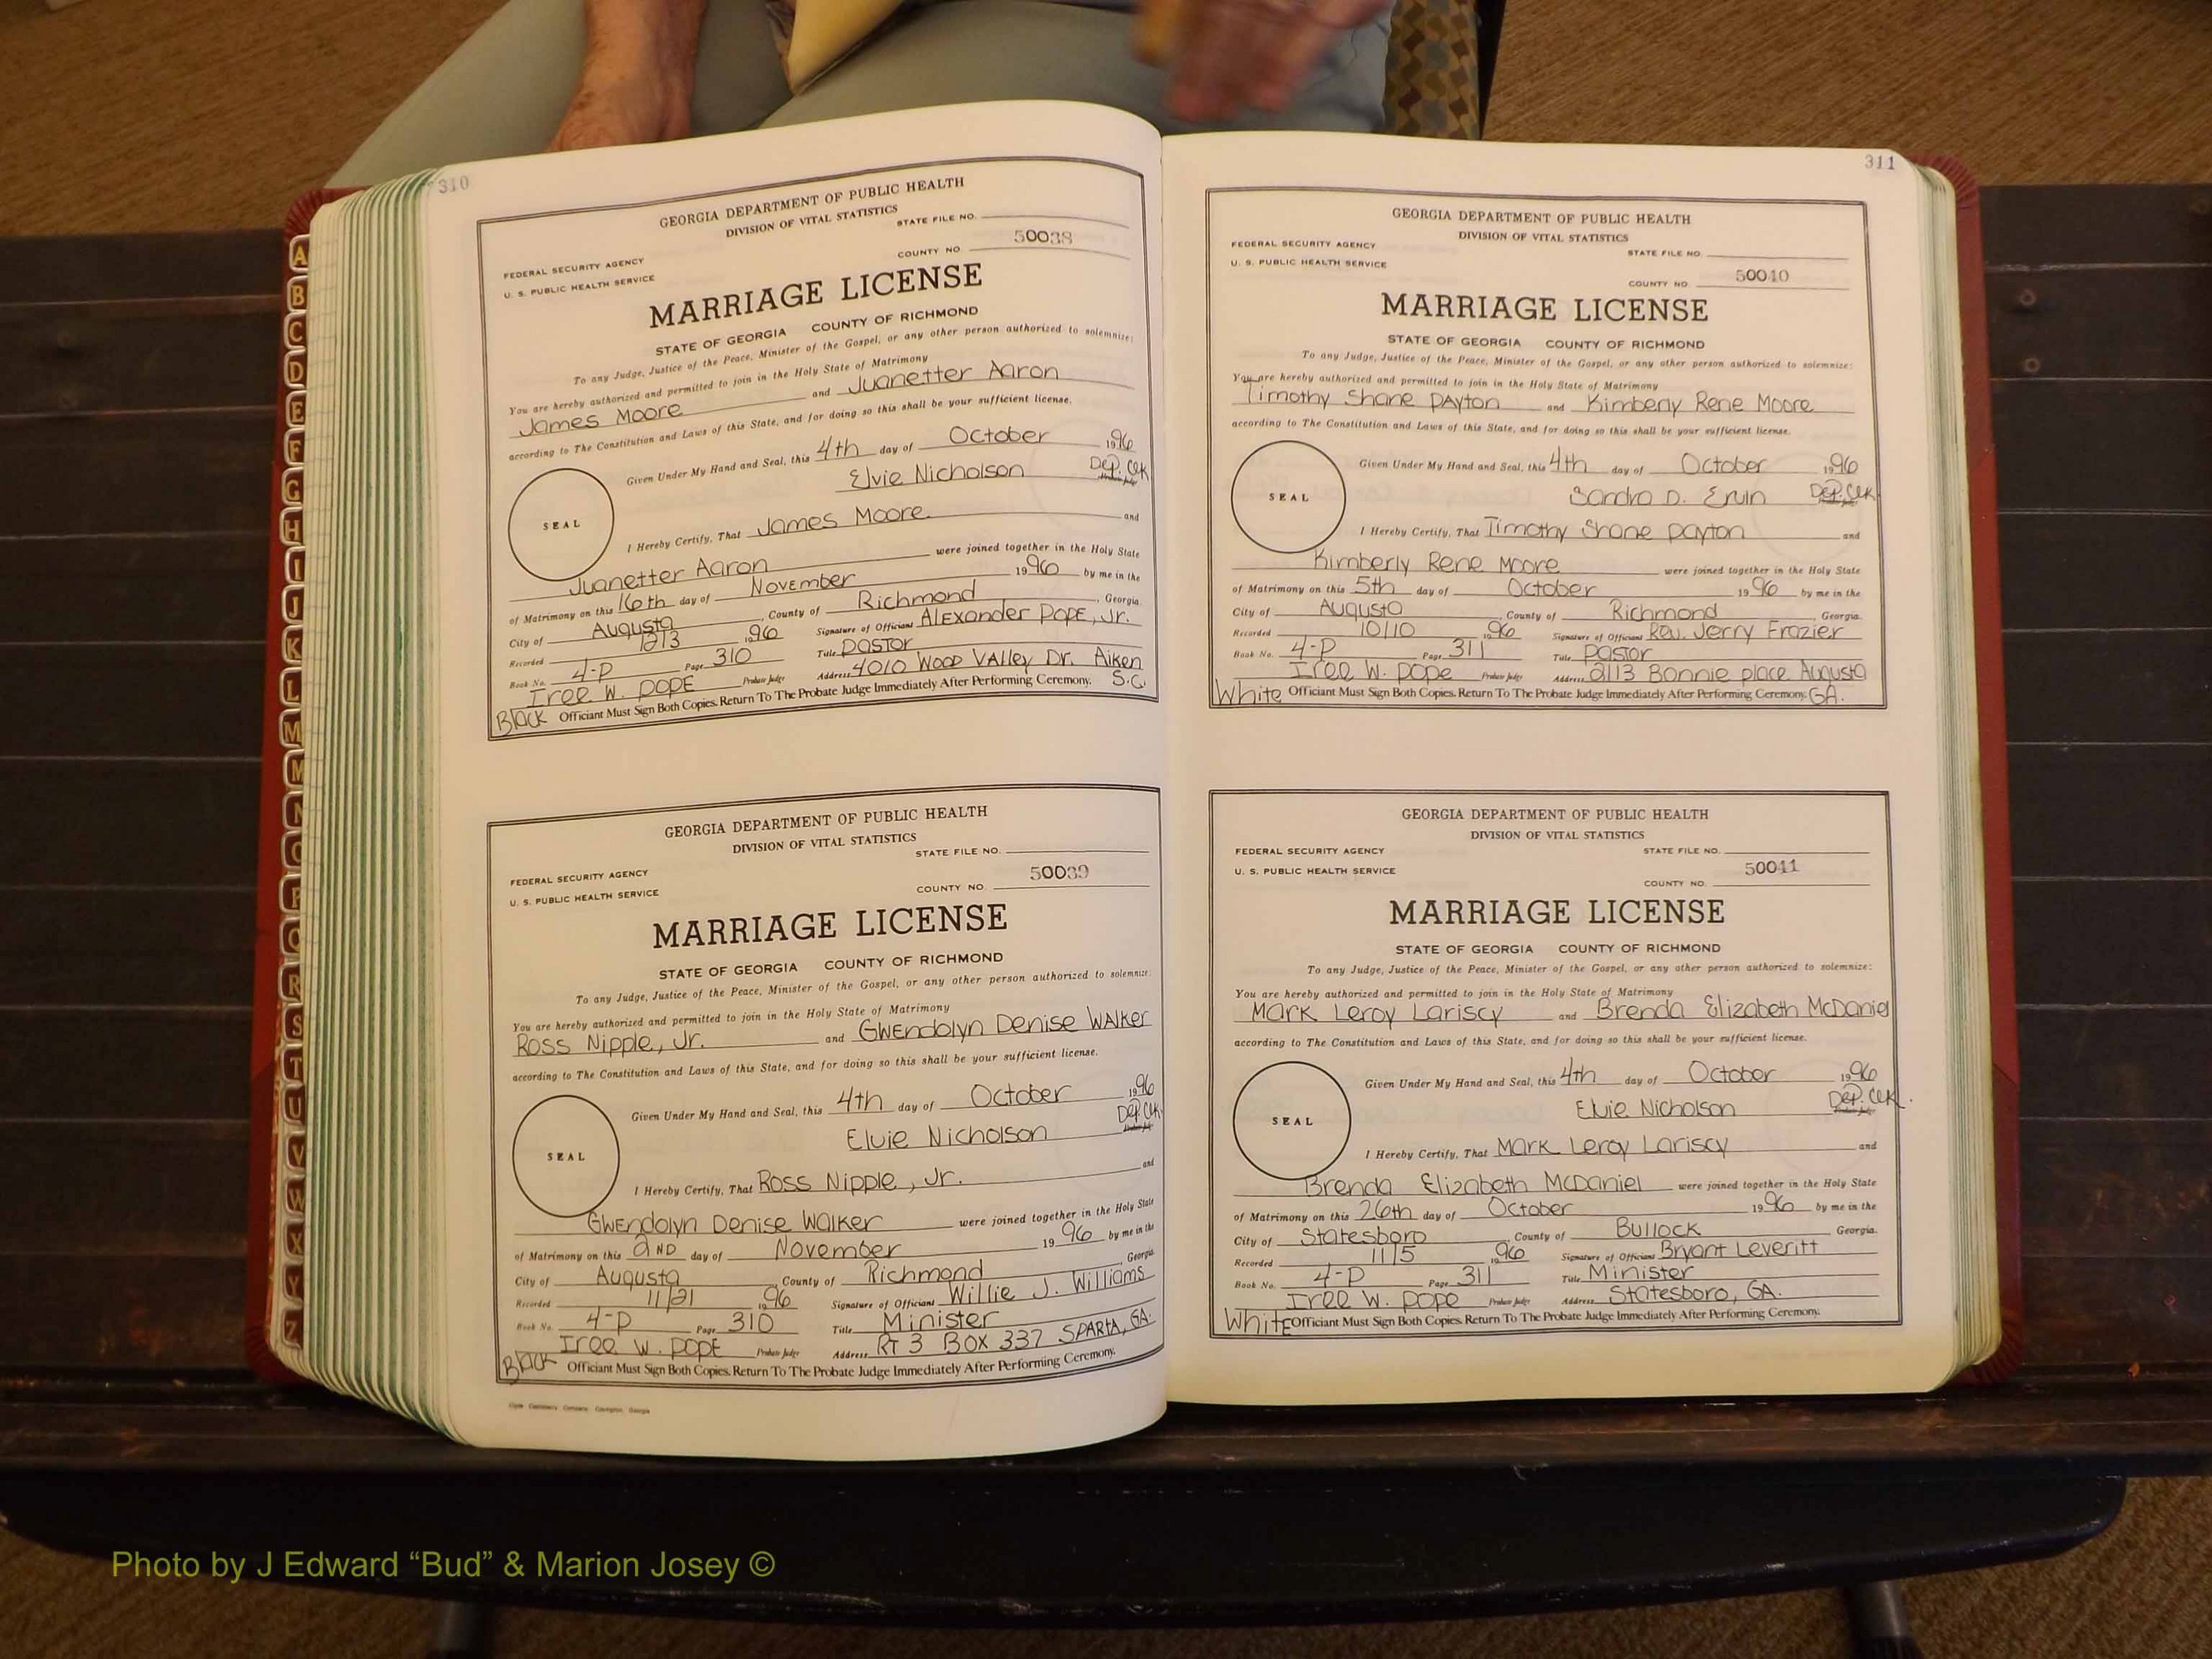 310
GEORGIA DEPARTMENT OF PUBLIC HEALTH
DIVISION OF VITAL STATISTICS
STATE FILE NO.
FEDERAL SECURITY AGENCY
COUNTY NO. 50038
U. S. PUBLIC HEALTH SERVICE
MARRIAGE LICENSE
STATE OF GEORGIA COUNTY OF RICHMOND
To any Judge, Justice of the Peace, Minister of the Gospel, or any other person authorized to solemnize:
You are hereby authorized and permitted to join in the Holy State of Matrimony
James Moore and Juanetter Aaron
according to The Constitution and Laws of this State, and for doing so this shall be your sufficient license.
Given Under My Hand and Seal, this 4th day of October 1996
Elvie Nicholson Dep. Clk
SEAL
I Hereby Certify, That James Moore and
Juanetter Aaron were joined together in the Holy State
of Matrimony on this 16th day of November 1996 by me in the
City of Augusta, County of Richmond, Georgia.
Recorded 12/3 1996 Signature of Official Alexander Pope, Jr.
Book No. 4-P Page 310 Title Pastor
Iree W. Pope Probate Judge Address 4010 Wood Valley Dr. Aiken S.C.
Black Officiant Must Sign Both Copies. Return To The Probate Judge Immediately After Performing Ceremony.
GEORGIA DEPARTMENT OF PUBLIC HEALTH
DIVISION OF VITAL STATISTICS
STATE FILE NO.
FEDERAL SECURITY AGENCY
COUNTY NO. 50039
U. S. PUBLIC HEALTH SERVICE
MARRIAGE LICENSE
STATE OF GEORGIA COUNTY OF RICHMOND
To any Judge, Justice of the Peace, Minister of the Gospel, or any other person authorized to solemnize:
You are hereby authorized and permitted to join in the Holy State of Matrimony
Ross Nipple, Jr. and Gwendolyn Denise Walker
according to The Constitution and Laws of this State, and for doing so this shall be your sufficient license.
Given Under My Hand and Seal, this 4th day of October 1996
Elvie Nicholson Dep. Clk.
SEAL
I Hereby Certify, That Ross Nipple, Jr. and
Gwendolyn Denise Walker were joined together in the Holy State
of Matrimony on this 2ND day of November 1996 by me in the
City of Augusta, County of Richmond, Georgia.
Recorded 11/21 1996 Signature of Official Willie J. Williams
Book No. 4-P Page 310 Title Minister
Iree W. Pope Probate Judge Address Rt 3 Box 337 Sparta, GA.
Black Officiant Must Sign Both Copies. Return To The Probate Judge Immediately After Performing Ceremony.
311
GEORGIA DEPARTMENT OF PUBLIC HEALTH
DIVISION OF VITAL STATISTICS
FEDERAL SECURITY AGENCY STATE FILE NO.
U. S. PUBLIC HEALTH SERVICE
COUNTY NO. 50040
MARRIAGE LICENSE
STATE OF GEORGIA COUNTY OF RICHMOND
To any Judge, Justice of the Peace, Minister of the Gospel, or any other person authorized to solemnize:
You are hereby authorized and permitted to join in the Holy State of Matrimony
Timothy Shane Payton and Kimberly Rene Moore
according to The Constitution and Laws of this State, and for doing so this shall be your sufficient license.
Given Under My Hand and Seal, this 4th day of October 1996
Sandra D. Ervin Dep. Clk
SEAL
I Hereby Certify, That Timothy Shane Payton and
Kimberly Rene Moore were joined together in the Holy State
of Matrimony on this 5th day of October 1996 by me in the
City of Augusta, County of Richmond, Georgia.
Recorded 10/10 1996 Signature of Official Rev. Jerry Frazier
Book No. 4-P Page 311 Title Pastor
Iree W. Pope Probate Judge Address 2113 Bonnie place Augusta
White Officiant Must Sign Both Copies. Return To The Probate Judge Immediately After Performing Ceremony. GA.
GEORGIA DEPARTMENT OF PUBLIC HEALTH
DIVISION OF VITAL STATISTICS
FEDERAL SECURITY AGENCY STATE FILE NO.
U. S. PUBLIC HEALTH SERVICE
COUNTY NO. 50041
MARRIAGE LICENSE
STATE OF GEORGIA COUNTY OF RICHMOND
To any Judge, Justice of the Peace, Minister of the Gospel, or any other person authorized to solemnize:
You are hereby authorized and permitted to join in the Holy State of Matrimony
Mark Leroy Lariscy and Brenda Elizabeth McDaniel
according to The Constitution and Laws of this State, and for doing so this shall be your sufficient license.
Given Under My Hand and Seal, this 4th day of October 1996
Elvie Nicholson Dep. Clk.
SEAL
I Hereby Certify, That Mark Leroy Lariscy and
Brenda Elizabeth McDaniel were joined together in the Holy State
of Matrimony on this 26th day of October 1996 by me in the
City of Statesboro, County of Bullock Georgia.
Recorded 11/5 1996 Signature of Official Bryant Leveritt
Book No. 4-P Page 311 Title Minister
Iree W. Pope Probate Judge Address Statesboro, GA.
White Officiant Must Sign Both Copies. Return To The Probate Judge Immediately After Performing Ceremony.
A
B
C
D
E
F
G
H
I
J
K
L
M
M
N
O
P
Q
R
S
T
U
V
W
X
Y
Z
Photo by J Edward “Bud” & Marion Josey ©